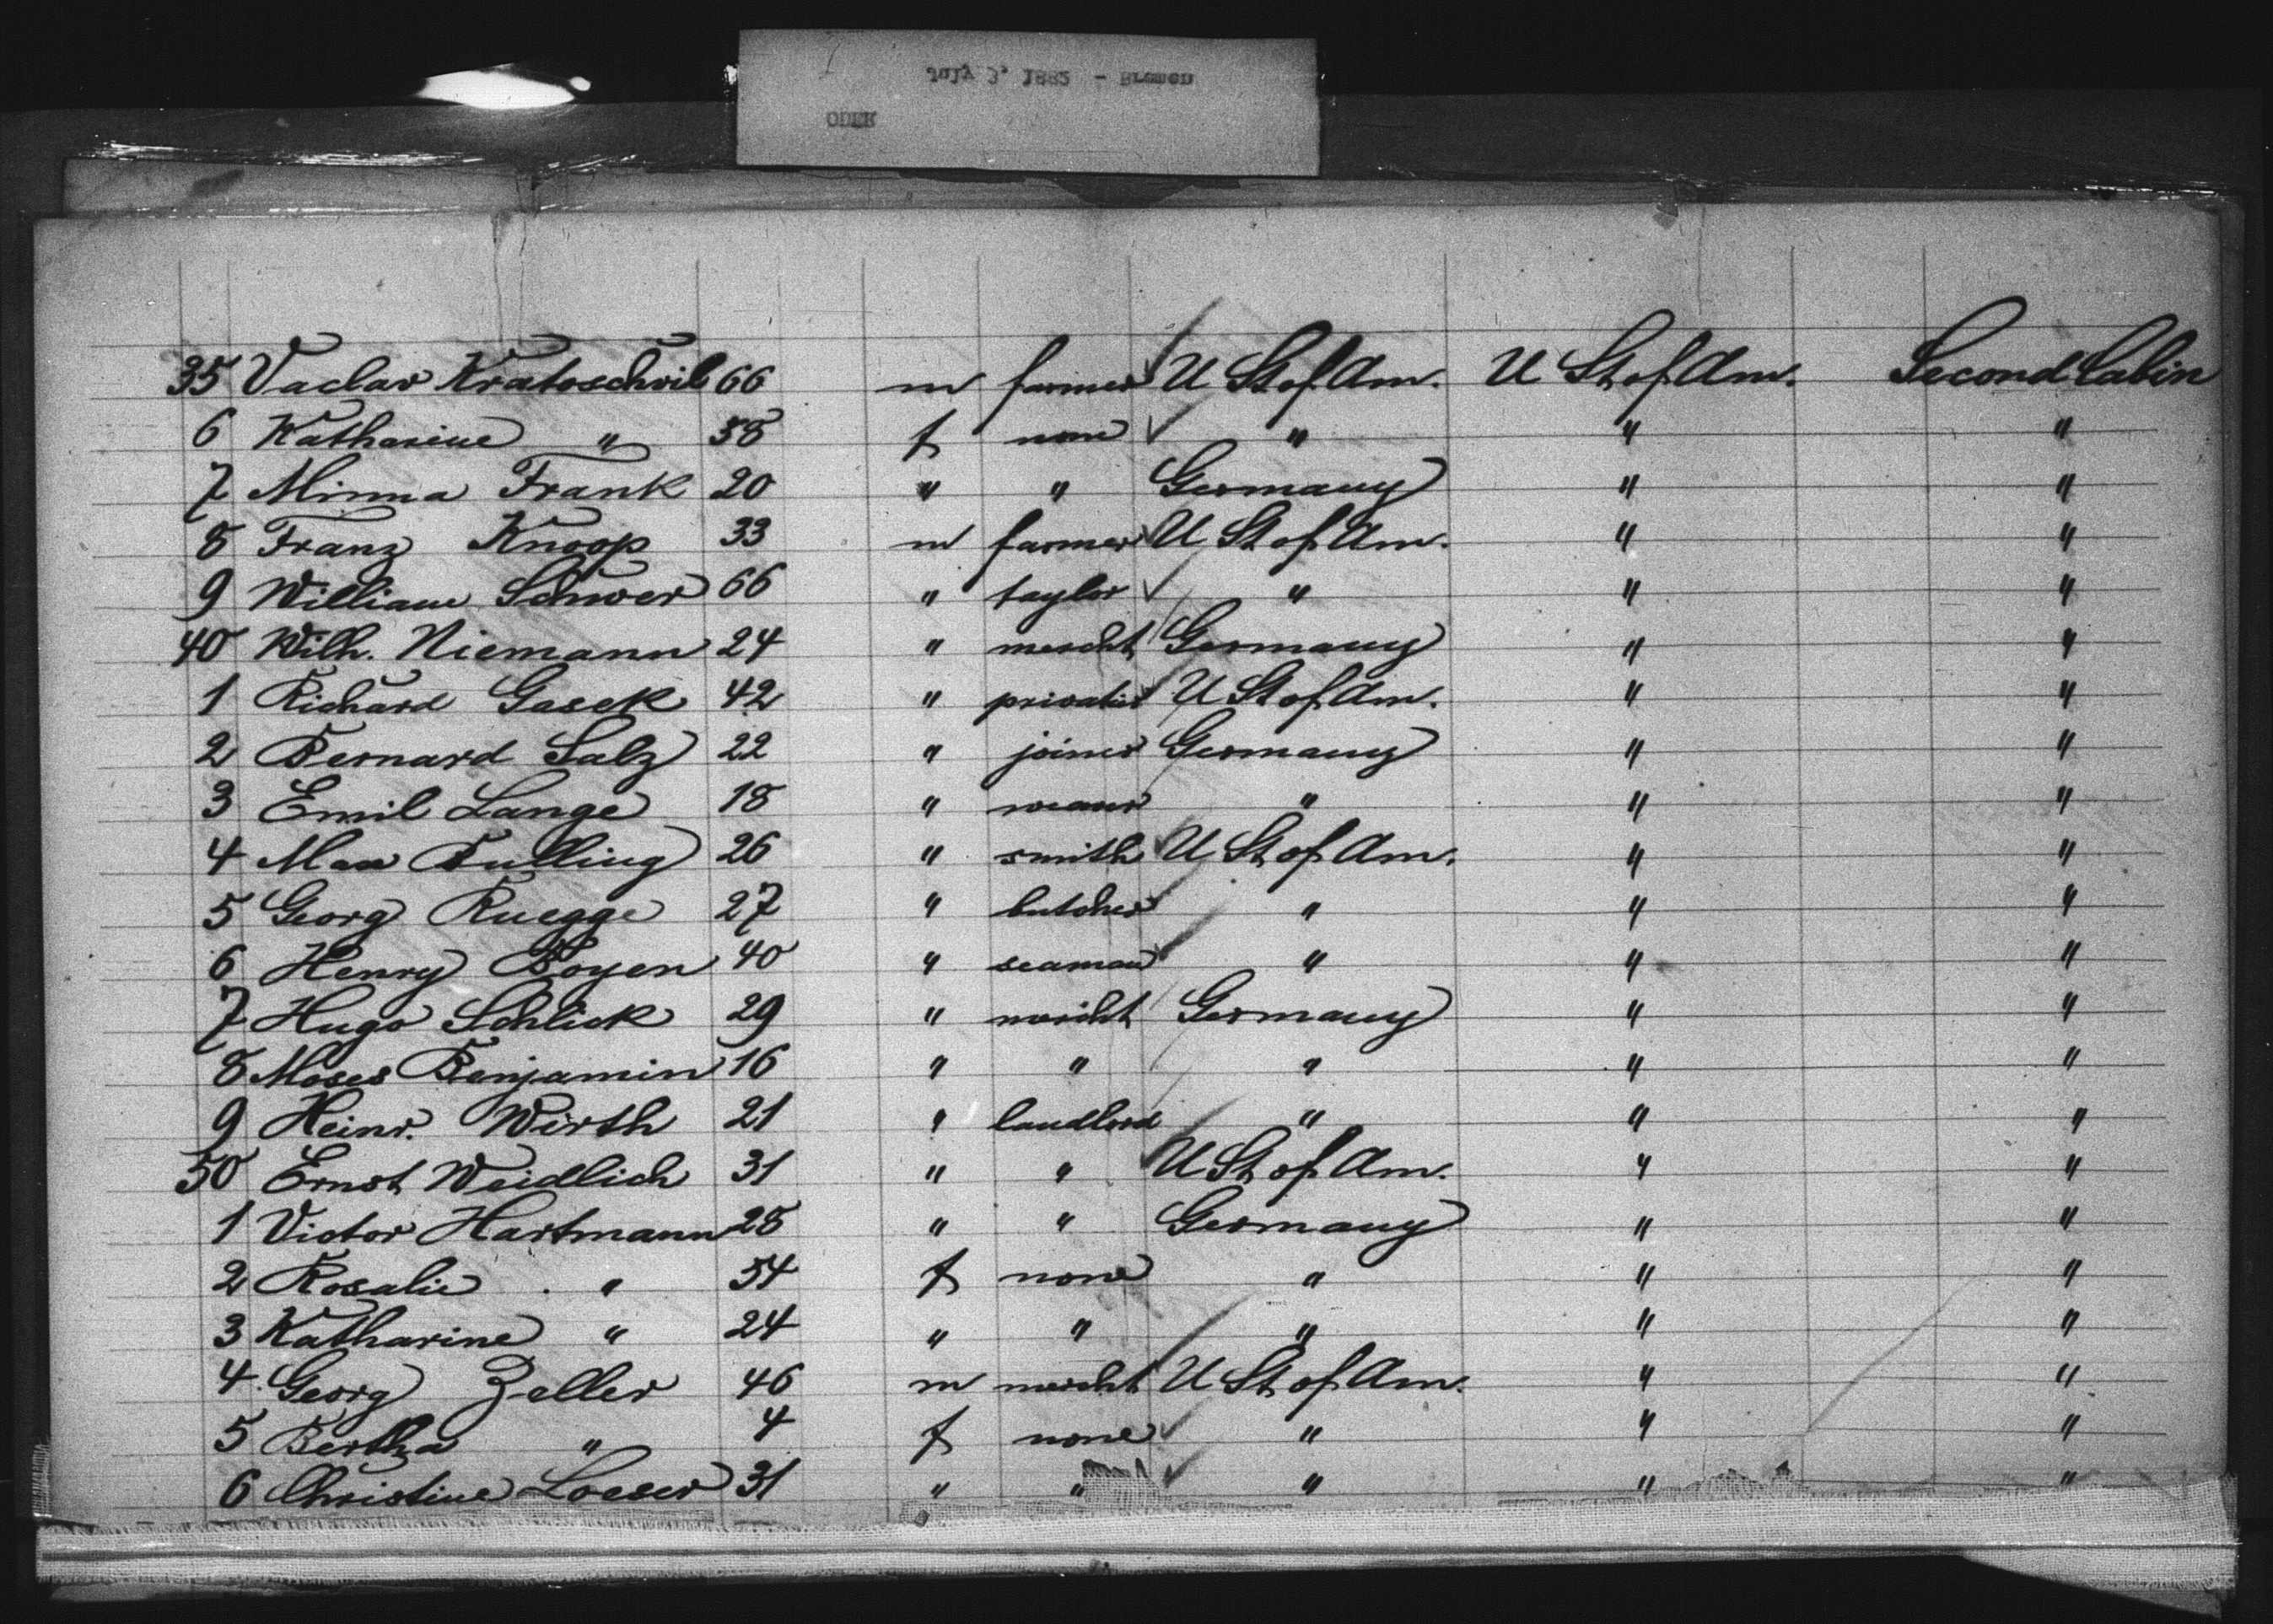 July 3, 1882 - Bremen
ODER
35 Vaclav Kratoschvil 66 m farmer U St of Am. U St of Am. Second Cabin
6 Katharine " 58 f none " " "
7 Minna Frank 20 " " Germany " "
8 Franz Knoop 33 m farmer U St of Am. " "
9 William Schwer 66 " taylor " " "
40 Wilh. Niemann 24 " mercht Germany " "
1 Richard Gasek 42 " privatier U St of Am. " "
2 Bernard Salz 22 " joiner Germany " "
3 Emil Lange 18 " " " "
4 Max Bulling 26 " smith U St of Am. " "
5 Georg Ruegge 27 " butcher " " "
6 Henry Boyen 40 " seaman " " "
7 Hugo Schlick 29 " mercht Germany " "
8 Moses Benjamin 16 " " " " "
9 Heinr. Wirth 21 " landlord " " "
50 Ernst Weidlich 31 " " U St of Am. " "
1 Victor Hartmann 28 " " Germany " "
2 Rosalie " 54 f none " " "
3 Katharine " 24 " " " " "
4 Georg Zeller 46 m mercht U St of Am. " "
5 Bertha " 4 f none " " "
6 Christine Loeser 31 " " " " "